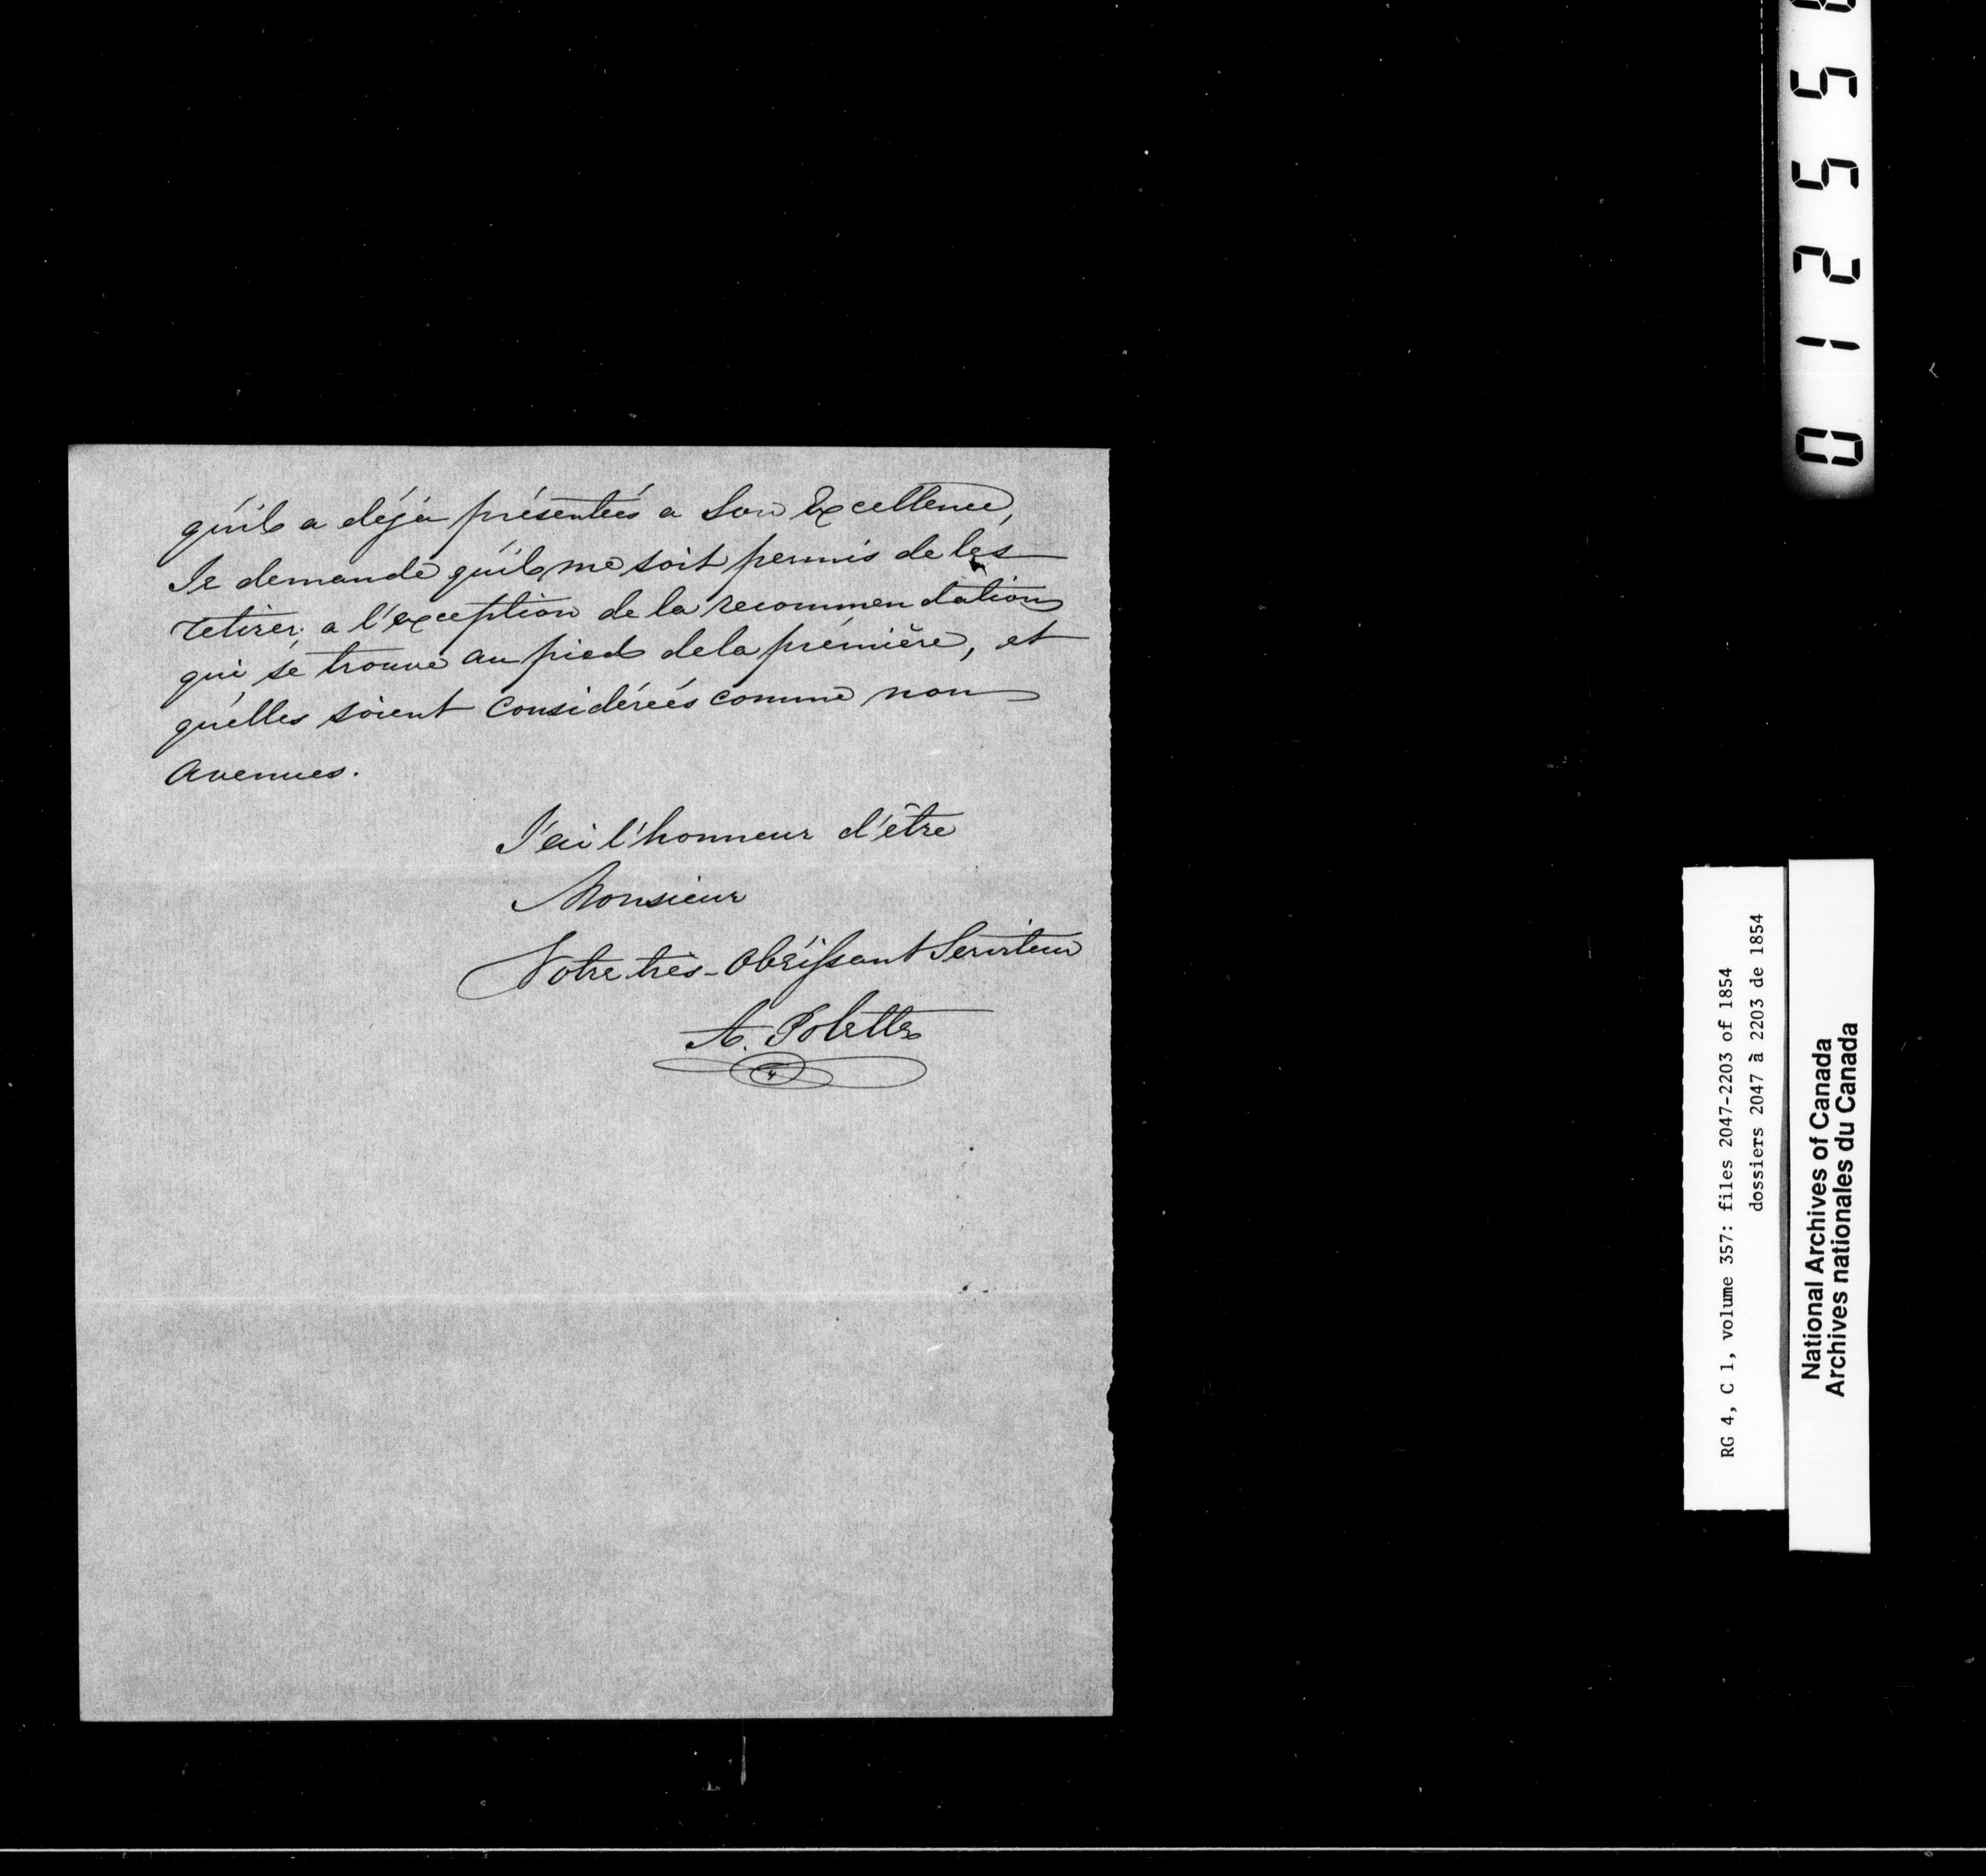 qu'il a déjà présentées a Son Excellence,
Je demande qu'il me soit permis de les
retirer, a l'exception de la recommendation
qui se trouve au pied de la première, et
qu'elles soient considérées comme non
avenues.
J'ai l'honneur d'être
Monsieur
Votre très-obéissant Serviteur
A. Polette
0 1 2 5 5
RG 4, C 1, volume 357: files 2047-2203 of 1854
dossiers 2047 à 2203 de 1854
National Archives of Canada
Archives nationales du Canada